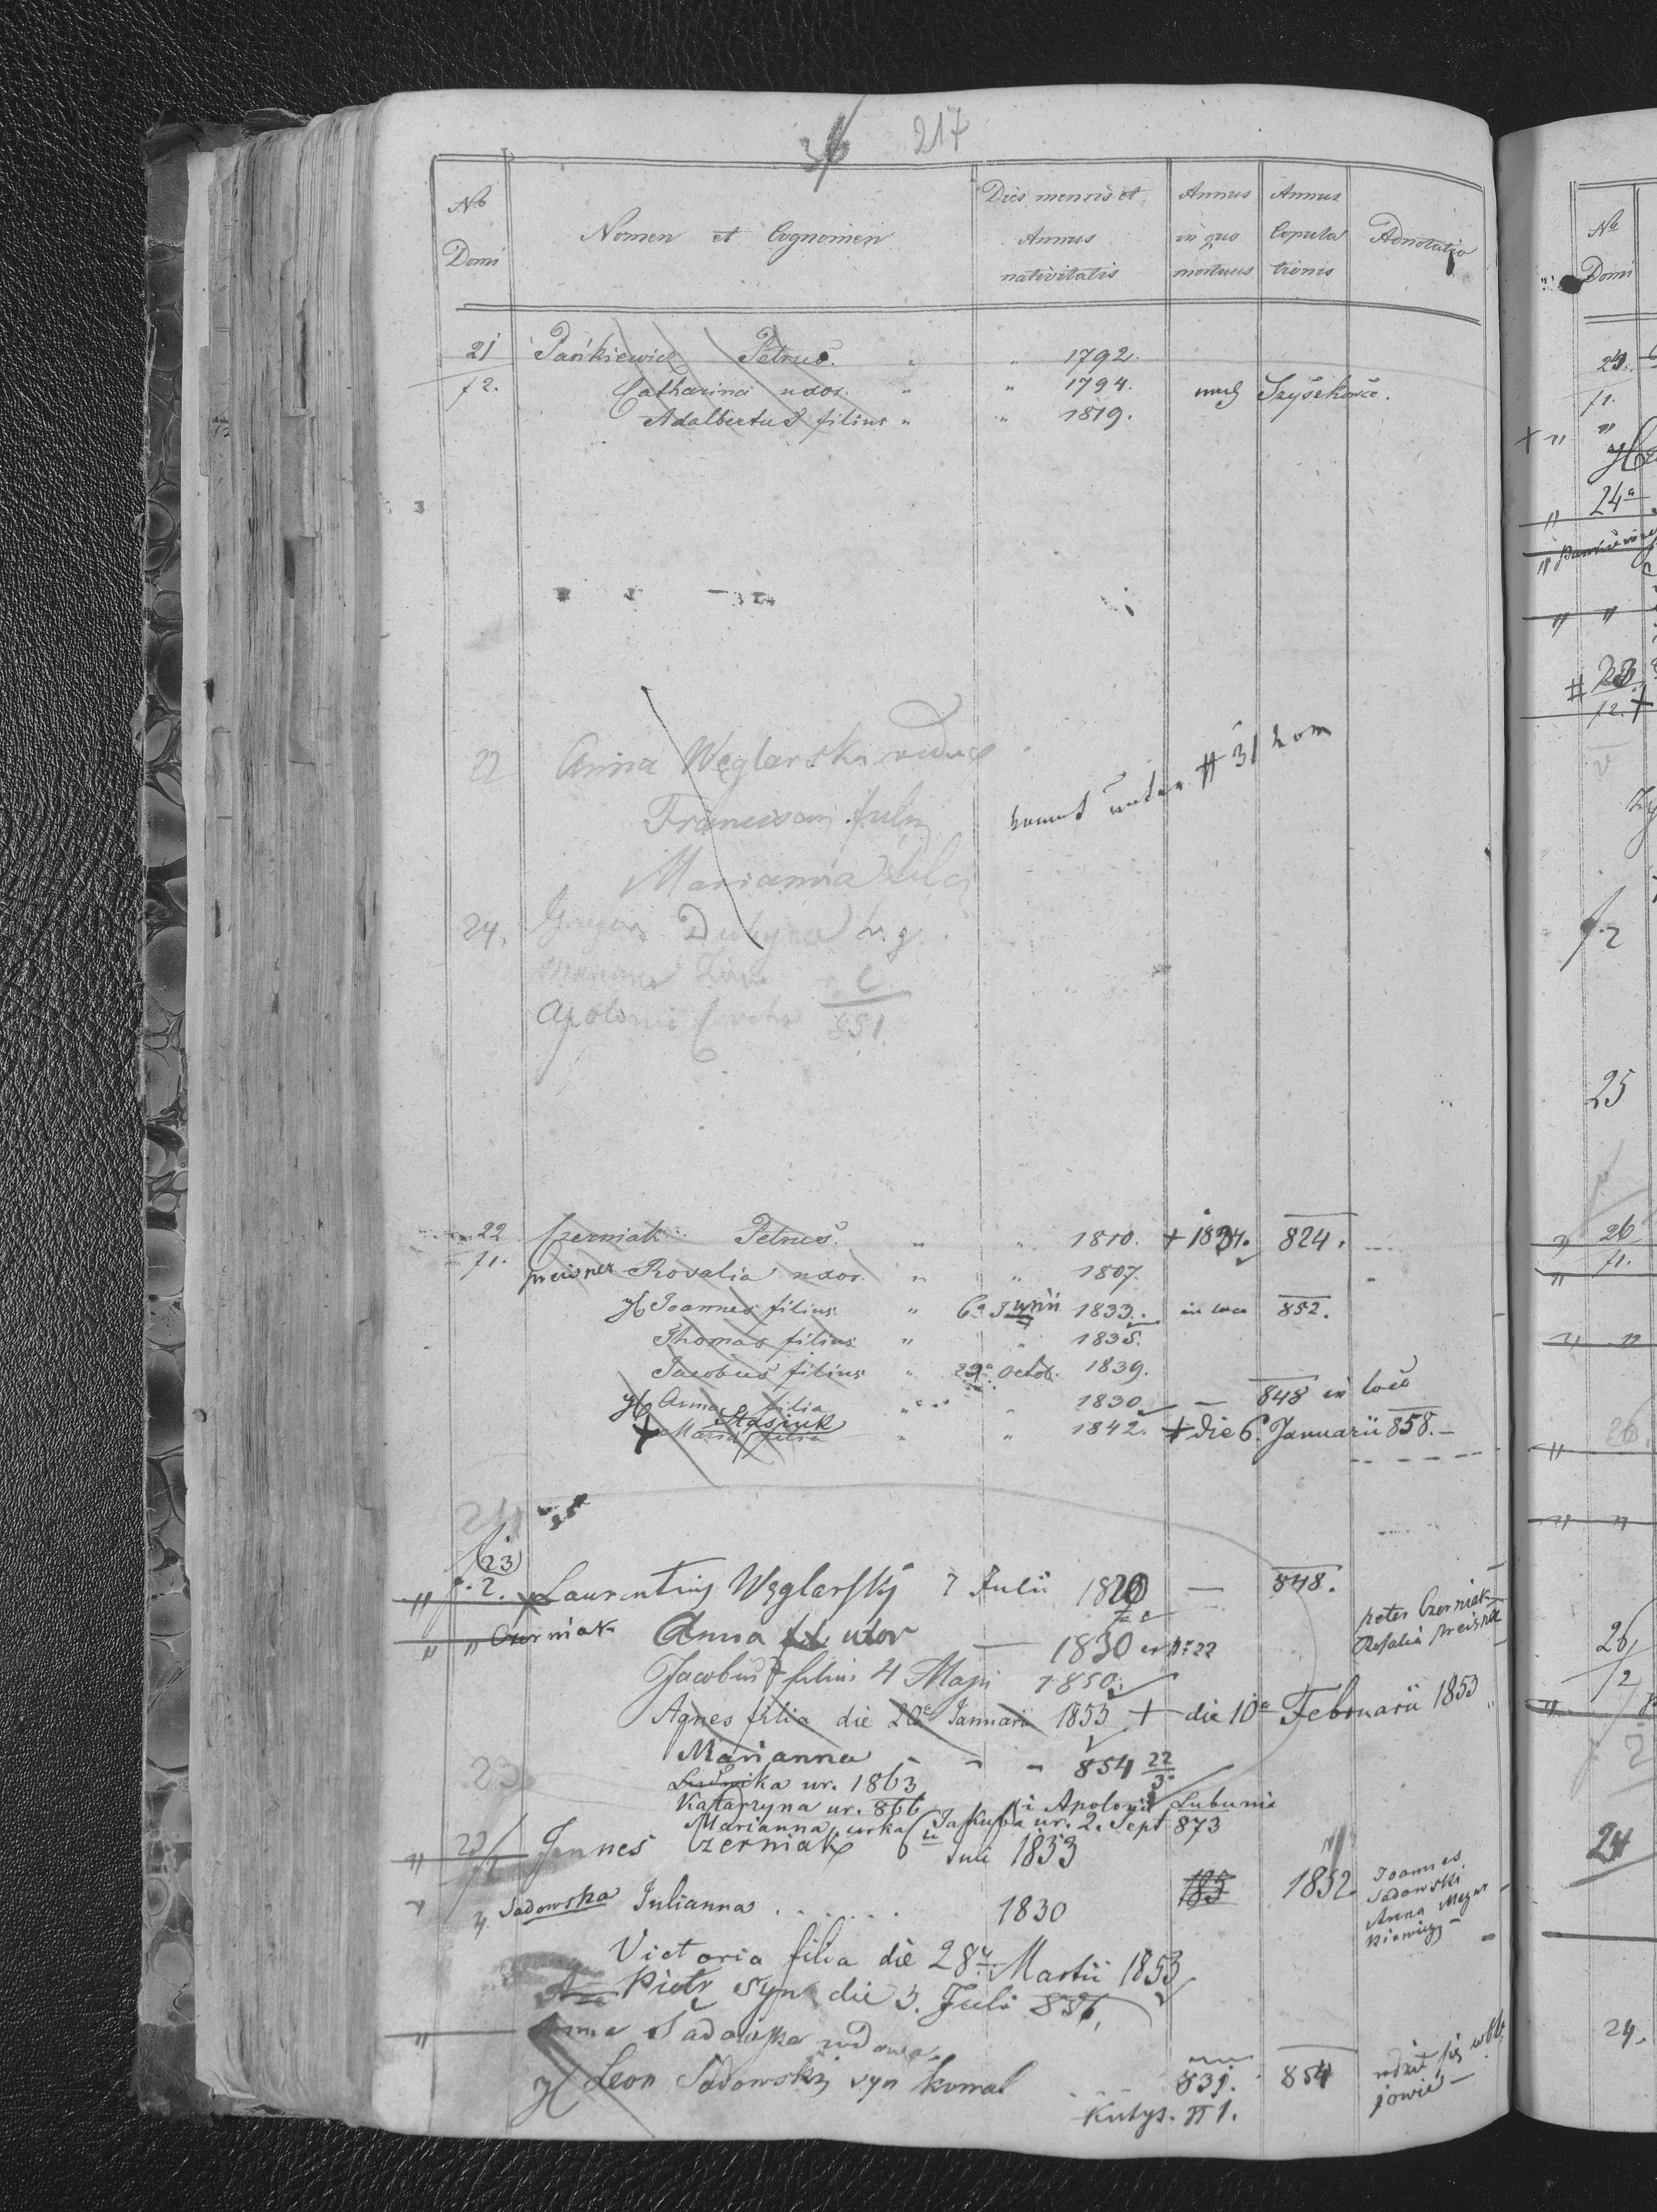 217
No Domi | Nomen et Cognomen | Dies mensis et Annus nativitatis | Annus in quo mortuus | Annus Copulationis | Adnotatio
21 Pańkiewicz Petrus. " " 1792.
f 2. Catharina uxor. " " 1794. nach Szyszkowce.
Adalbertus filius " " 1819.
22 Anna Węglarska vidua
Marianna
kommt unter # 31 vom
24.
Apolonia 851.
22 Czerniak Petrus. " " 1810. + 1834. 824.
f1. preisner Rosalia uxor. " " 1807.
Joannes filius " 6a Junii 1833. in loco 852.
Thomas filius " " 1835.
Jacobus filius " 29a Octob. 1839.
Anna filia " " 1830 — 848 in loco
Stasiuk
+ Maria filia " " 1842. + die 6. Januarii 858.
24
23
" f. 2. Laurentius Węglarsky 7 Julii 1820 — 848.
" " Czerniak Anna uxor — 1830 ex No 22 peter Czerniak Rosalia preisner
Jacobus filius 4 Maji 1850.
Agnes filia die 20a Januarii 1853 + die 10a Februarii 1853
Marianna - - 854 22/3
23
Ludwika ur. 1863
Katarzyna ur. 866 i Apolonii Lubunia
Marianna, córka Jakuba ur. 2. Sept 873
" 23/1 Joannes Czerniak 6 Juli 1833
" Sadowska Julianna . . . . . . 1830 185 1852 Joannes Sadowski Anna Mazurkiewicz
Victoria filia die 28a Martii 1853
Piotr syn die 3. Juli 856.
" Anna Sadowska wdowa.
Leon Sadowski syn kowal 831. 854
Kutys. # 1.